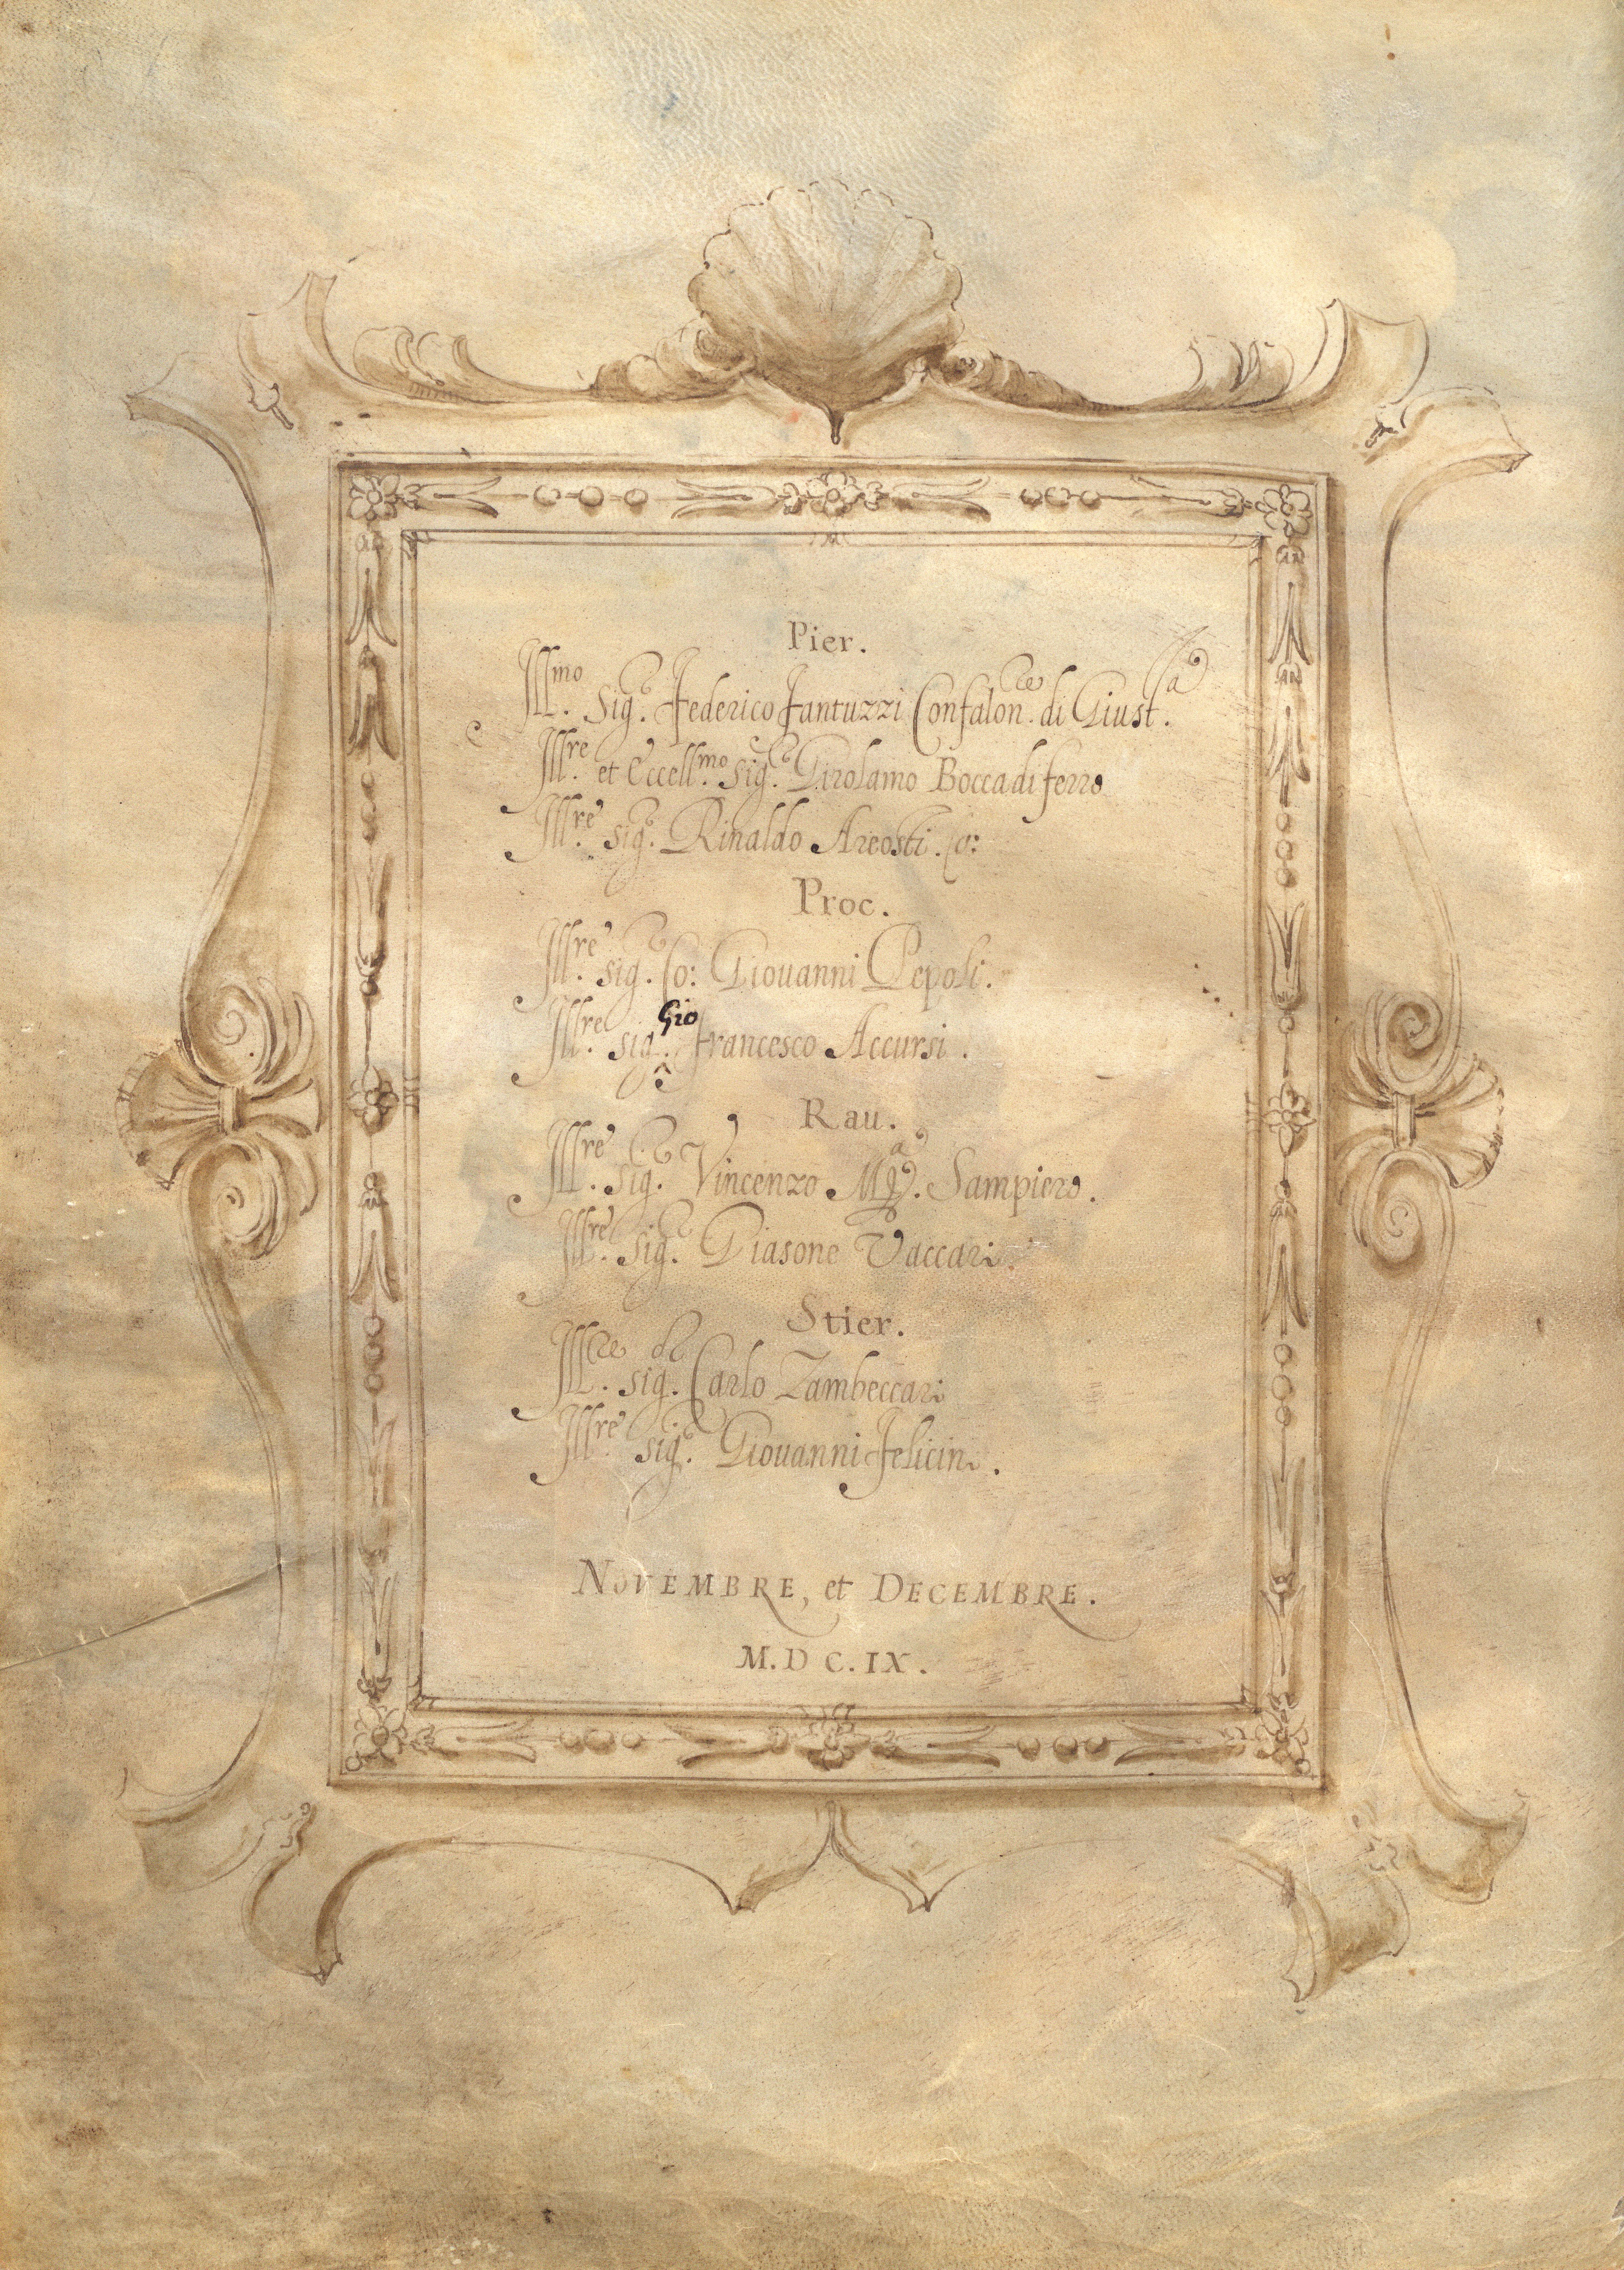 Pier.
Ill.mo Sig.r Federico Fantuzzi Confalon.re di Giust.a
Ill.re et Eccell.mo sig.r Girolamo Boccadiferro
Ill.re sig.r Rinaldo Areosti. Co:
Proc.
Ill.re sig.r Co: Giouanni Pepoli.
Ill.re sig.r Gio Francesco Accursi.
Rau.
Ill.re sig.r Vincenzo M.a Sampiero.
Ill.re sig.r Giasone Vaccari.
Stier.
Ill.re sig.r Carlo Zambeccari
Ill.re sig.r Giouanni Felicini.
NOVEMBRE, et DECEMBRE.
M.DC.IX.